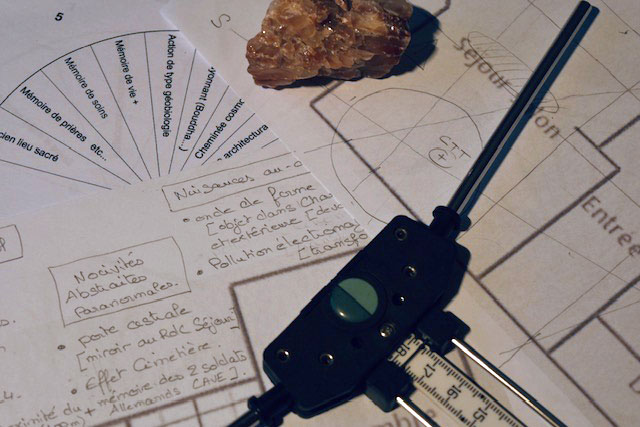 5
cien lieu sacré
Mémoire de prières etc...
Mémoire de soins
Mémoire de vie +
Action de type géobiologie
yonnant (Bouddha...)
Cheminée cosmo
architectura
S
Séjour
on
Entrée
Nuisances au-
• onde de forme
[objet dans Cha
et extérieure [deu
• Pollution électromag
[transfo
Nocivités
Abstraites
Paranormales.
• porte astrale
[miroir au RdC Séjour]
• Effet Cimetière.
+ mémoire des 2 soldats
Allemands CAVE].
oximité du
18
17
16
15